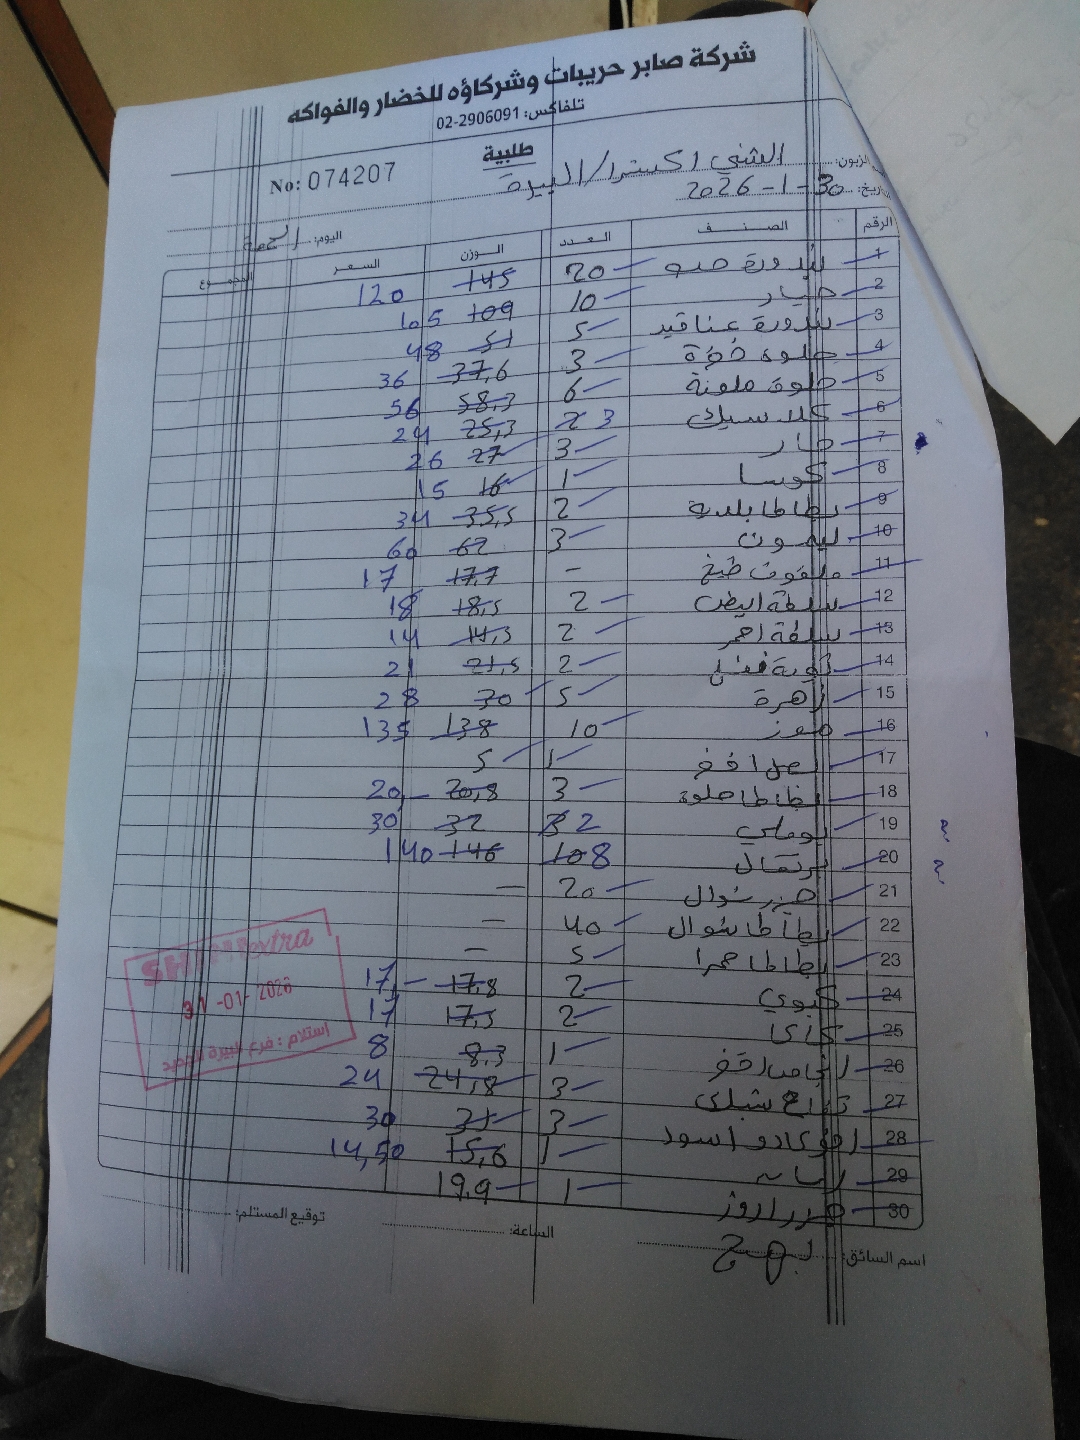 شركة صابر حريبات وشركاؤه للخضار والفواكه
تلفاكس: 02-2906091
طلبية
No: 074207
الزبون: الشني اكسترا/البيرة
التاريخ: 30-1-2026
اليوم: الجمعة
الرقم الصنف العدد الوزن السعر المجموع
1 بندورة حبه 20 145 120
2 خيار 10 109 105
3 بندورة عناقيد 5 51 48
4 حلوة 3 37,6 36
5 حلوة ملونة 6 58,3 56
6 كلاسيك 2 3 25,3 24
7 حار 3 27 26
8 كوسا 1 16 15
9 بطاطا بلدية 2 35,5 34
10 ليمون 3 62 60
11 ملفوف طبخ - 17,7 17
12 سلطة ابيض 2 18,5 18
13 سلطة احمر 2 14,3 14
14 2 21,5 21
15 زهرة 5 30 28
16 موز 10 138 135
17 1 5
18 بطاطا حلوة 3 20,8 20
19 بوملي 3 2 32 30
20 برتقال 10 8 146 140
21 جزر شوال 20 -
22 بطاطا شوال 40 -
23 بطاطا حمرا 5 -
24 كيوي 2 17,8 17
25 كاكا 2 17,5 17
26 1 8,3 8
27 تفاح 3 24,8 24
28 افوكادو اسود 3 31 30
29 1 15,6 14,50
30 1 19,9
اسم السائق: بهيج
الساعة:
توقيع المستلم:
extra
31-01-2026
استلام: فرع البيرة الجديد